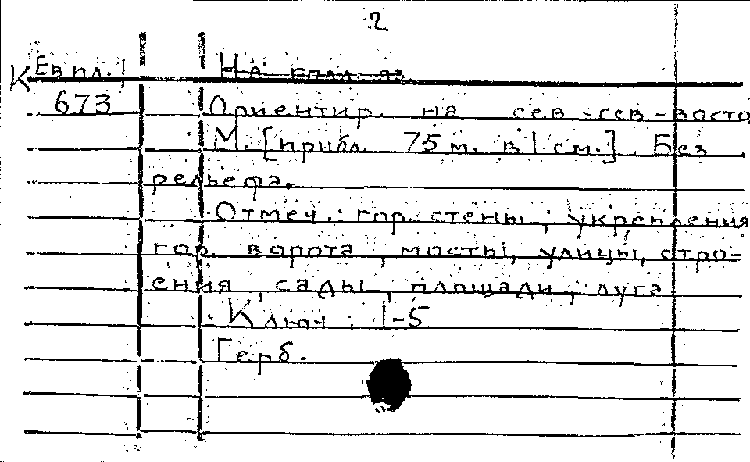 2
К Евпл.1 На колл-я:
673 Ориентир. на сев.-сев-восто
М. [прибл. 75 м. в 1 см.] Без
рельефа.
Отмеч.: гор. стены, укрепления
гор. ворота, мосты, улицы, стро-
ения, сады, площади, луга
Ключ: 1-5
Герб.